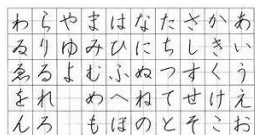 わらやまはなたさかあ
ゐりゆみひにちしきい
ゑるよむふぬつすくう
をれ めへねてせけえ
んろ もほのとそこお